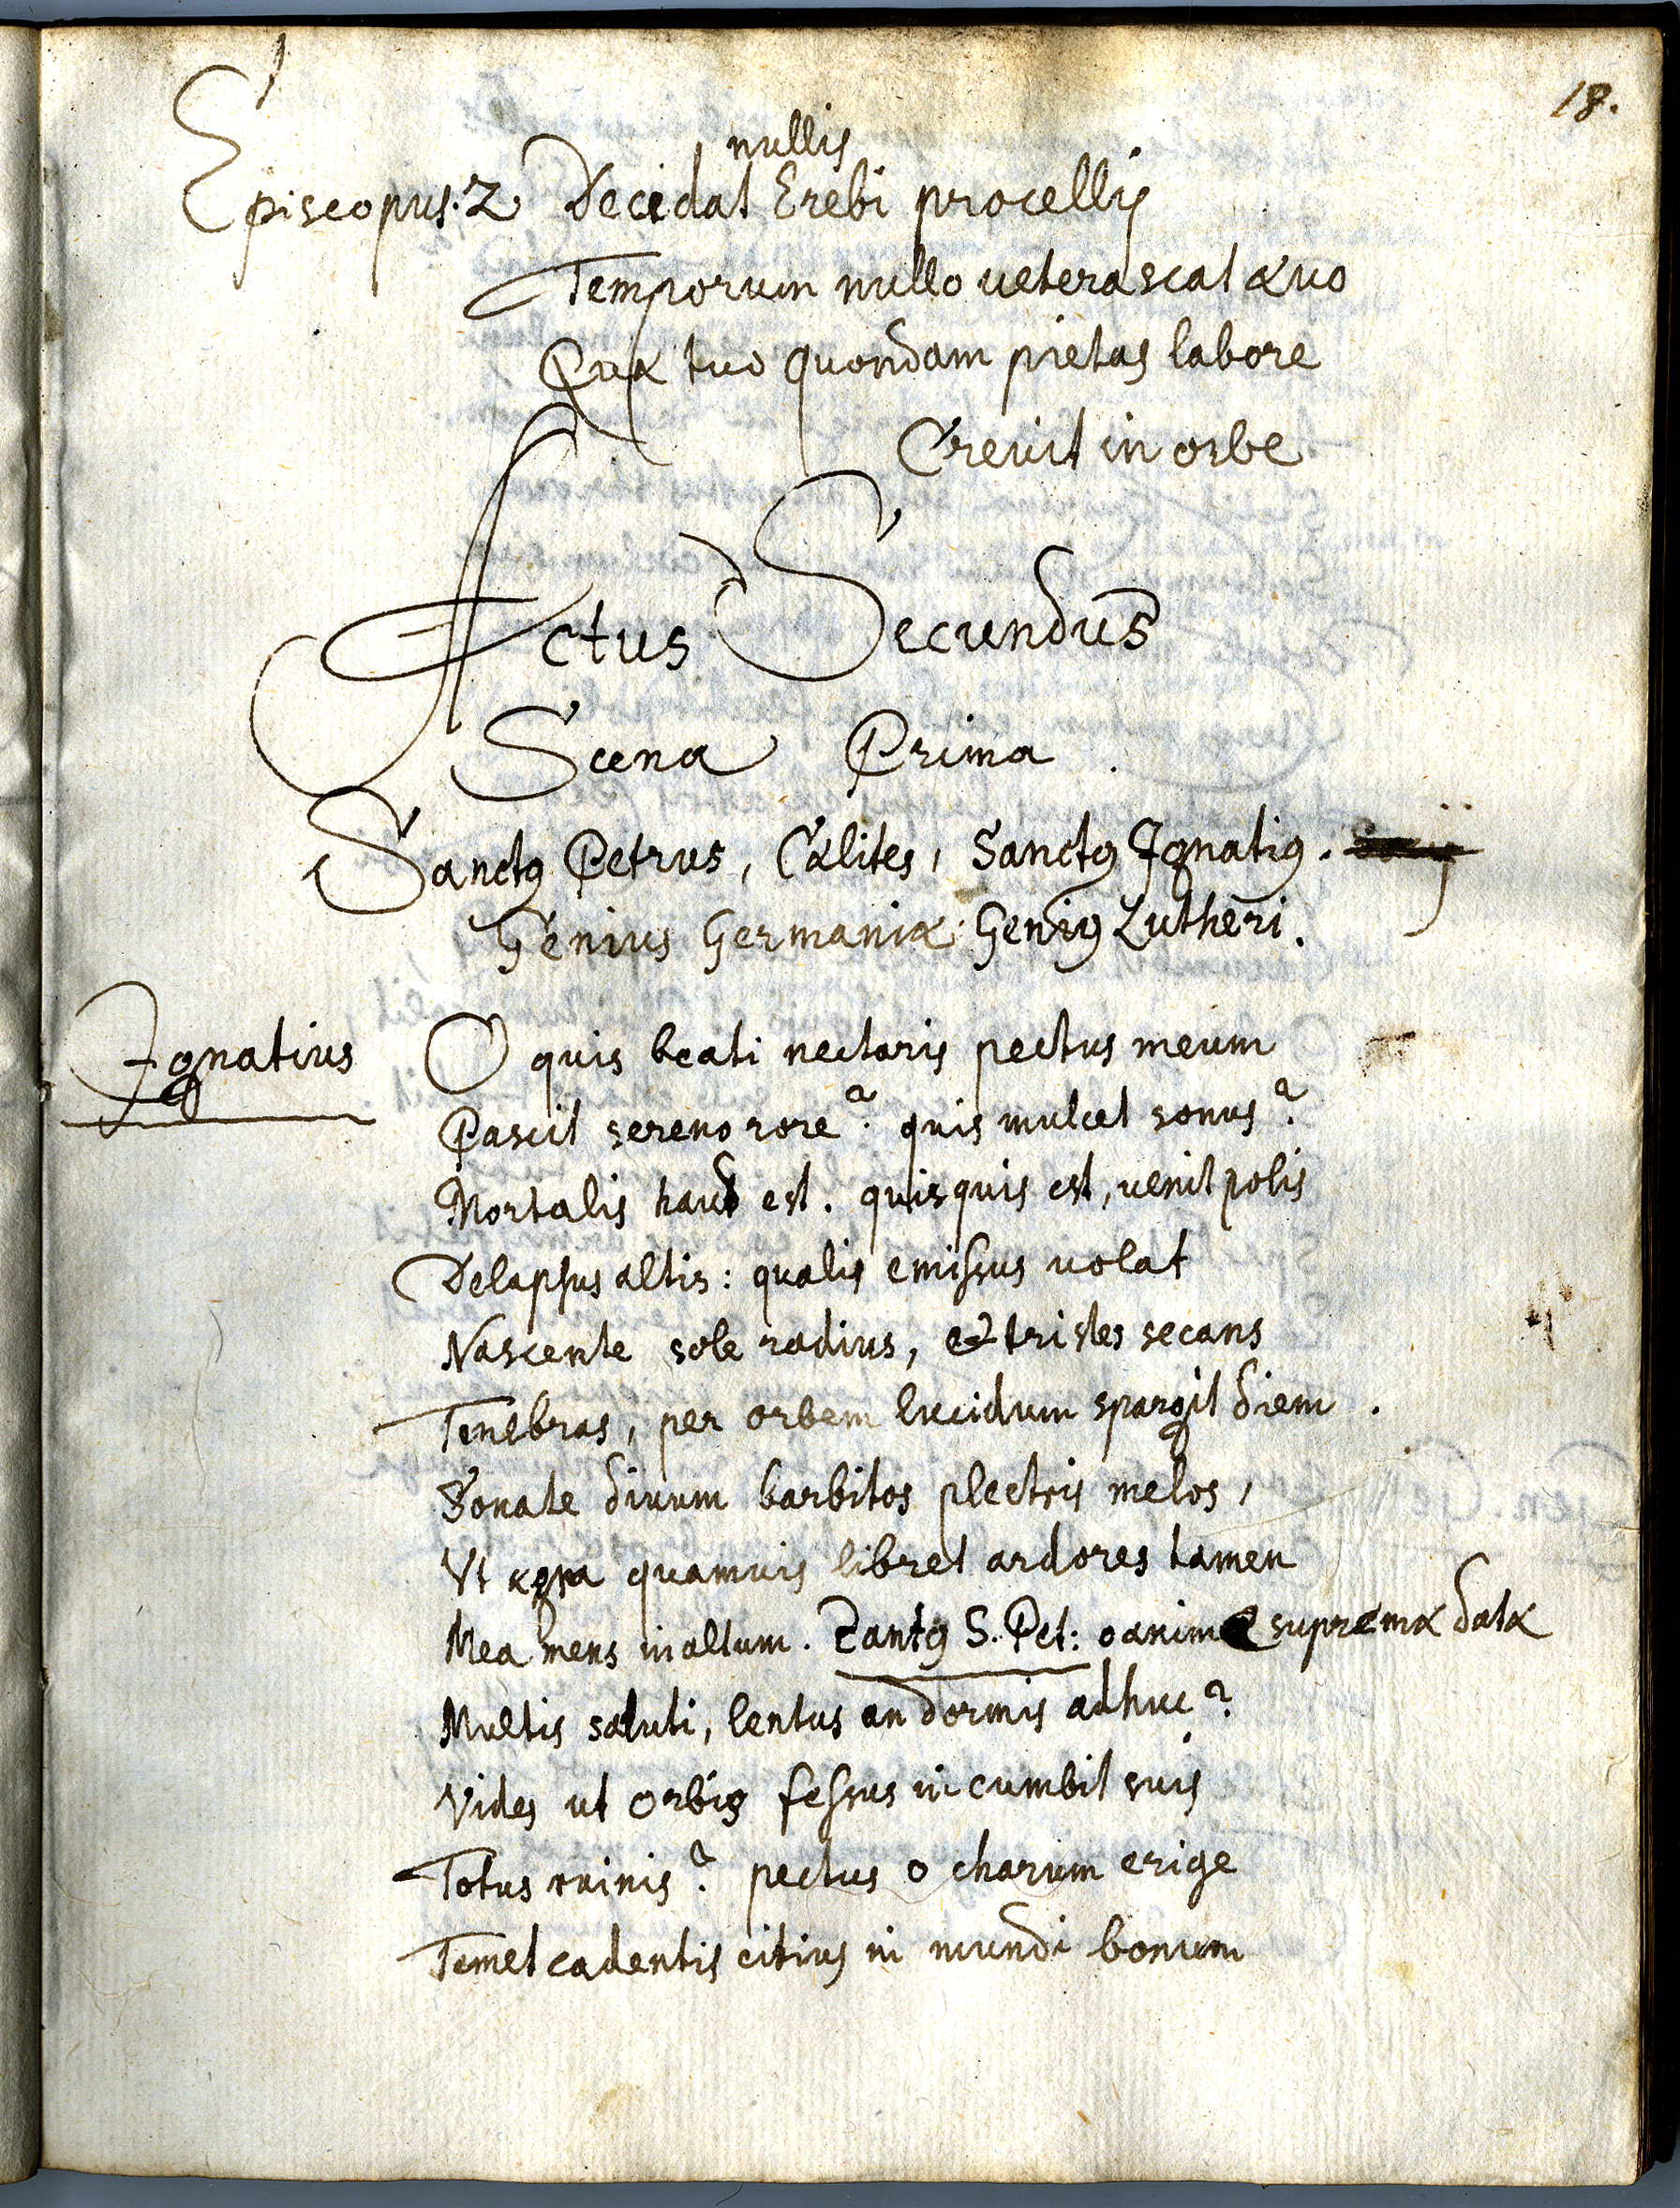 18.
nullis
Episcopus. 2 Decidat Erebi procellis
Temporum nullo veterascat ævo
Quæ tuo quondam pietas labore
Crevit in orbe
Actus Secundus
Scena Prima.
Sanctꝯ Petrus, Cælites, Sanctꝯ Ignatiꝯ.
Genius Germaniæ. Geniꝯ Lutheri.
Ignatius O quis beati nectaris pectus meum
Pascit sereno rore? quis mulcet sonus?
Mortalis haud est. quisquis est, venit polis
Delapsus altis: qualis emissus volat
Nascente sole radius, et tristes secans
Tenebras, per orbem lucidum spargit diem.
Sonate divum barbitos plectris melos,
Vt quamvis libret ardores tamen
Mea mens in altum. S. Pet: o animæ supremæ datæ
Multis saluti, lentus an dormis adhuc?
Vides ut orbis fessus incumbit suis
Totus ruinis? pectus o charum erige
Temet cadentis citius in mundi bonum